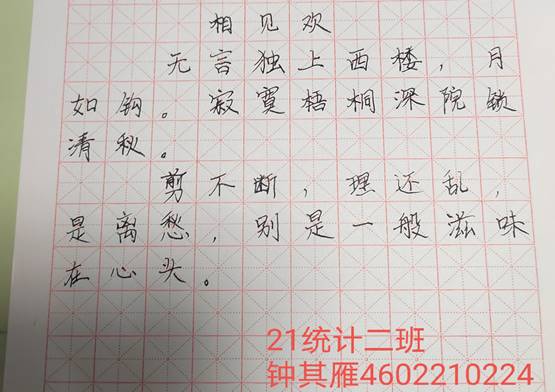 相见欢
无言独上西楼，月
如钩。寂寞梧桐深院锁
清秋。
剪不断，理还乱，
是离愁，别是一般滋味
在心头。
21统计二班
钟其雁4602210224